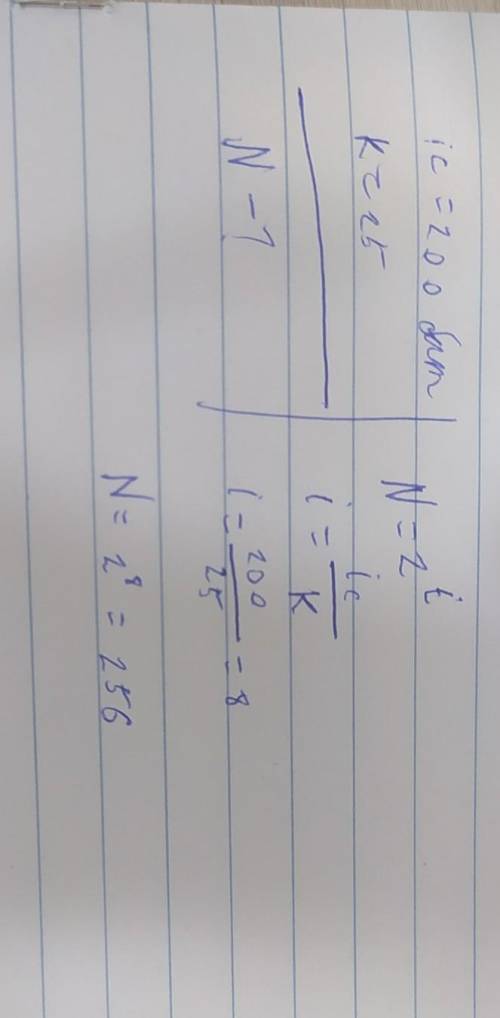 ic = 200 бит
K = 25
N - ?
N = 2^i
i = ic/K
i = 200/25 = 8
N = 2^8 = 256